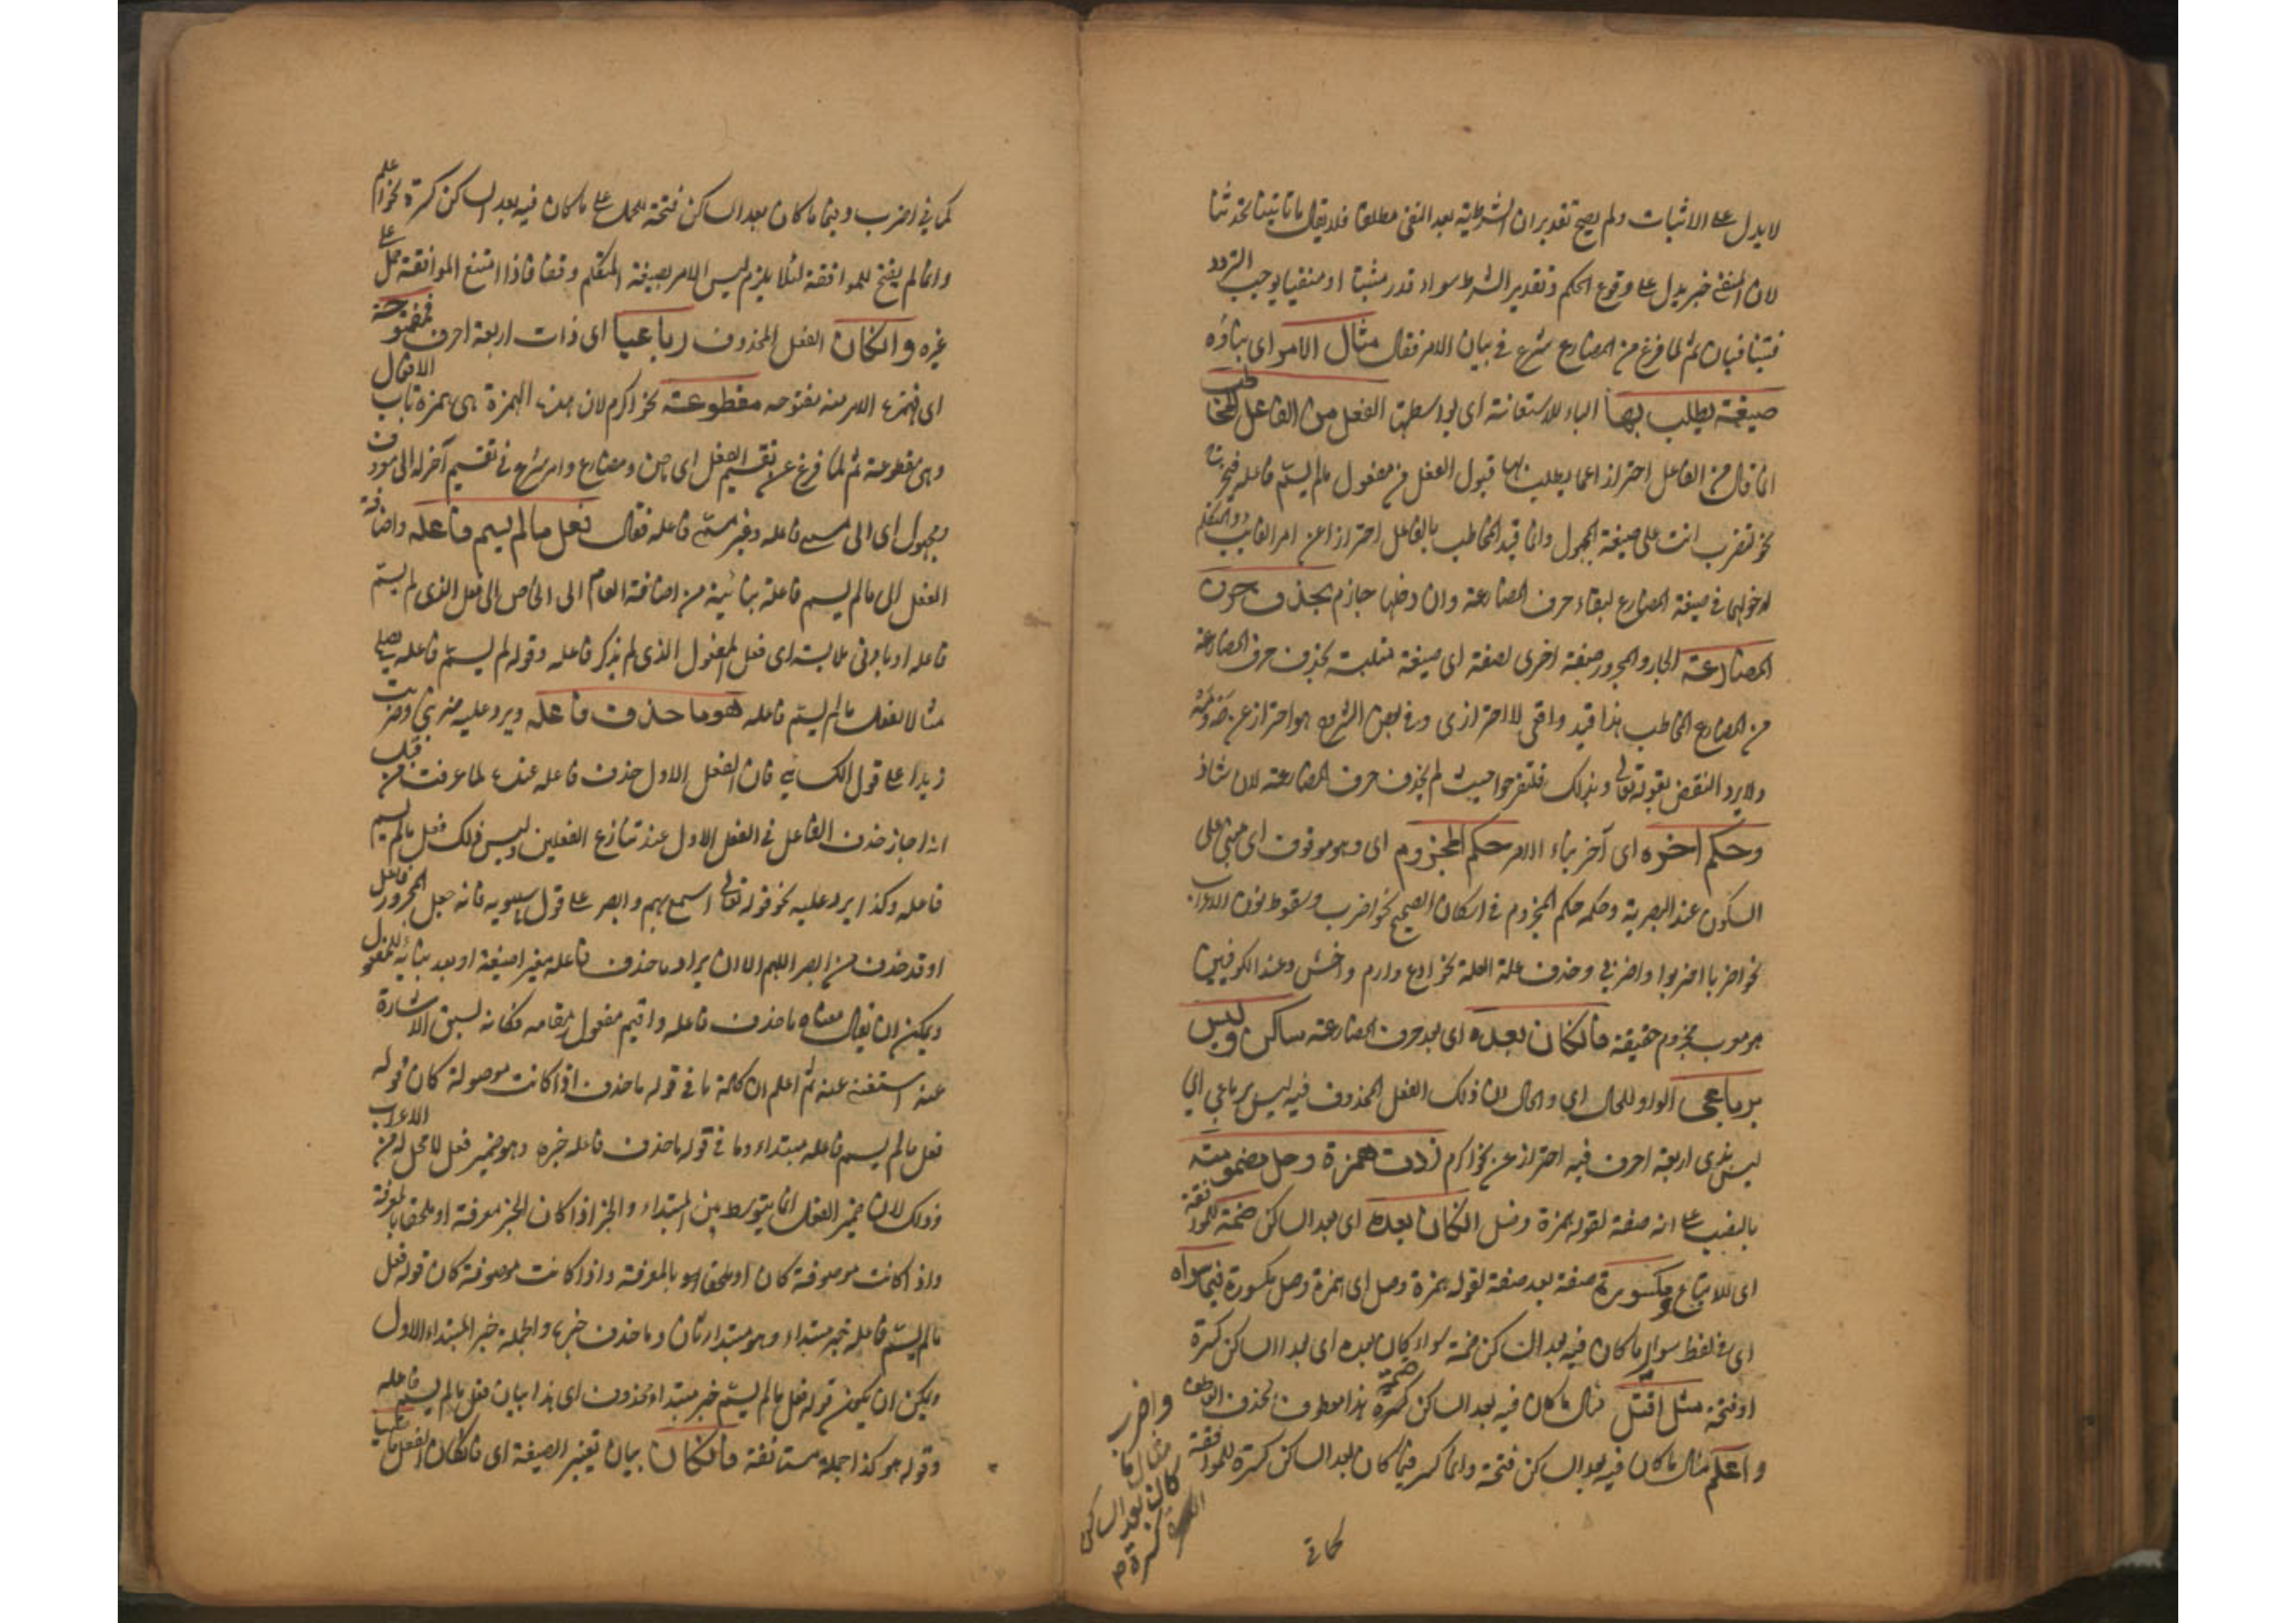 لا يدل على الاثبات ولم يصح تقدير ان الشرطية بعد النفى مطلقا فلا يقال ما تاتينا تحدثنا
لان المنفى خبر يدل على وقوع الحكم وتقدير الشرط سواء قدر مثبتا او منفيا يوجب التردد
فيتنافيان ثم لما فرغ من المضارع شرع فى بيان الامر فقال مثال الامر اى بناؤه
صيغة يطلب بها الباء للاستعانة اى بواسطتها الفعل من الفاعل المخاطب
انما قال من الفاعل احترازا عما يطلب بها قبول الفعل من مفعول مالم يسم فاعله
نحو لتضرب انت على صيغة المجهول وانما قيد المخاطب بالفاعل احترازا عن امر الغائب والمتكلم
لدخولهما فى صيغة المضارع لبقاء حرف المضارعة وان دخلها جازم بحذف حرف
المضارعة الجار والمجرور صفة اخرى لصيغة اى صيغة متلبسة بحذف حرف المضارعة
من المضارع المخاطب هذا قيد واقعى لا احترازى وفى بعض الشروح هو احتراز عن صه ومه
ولا يرد النقض بقوله تعالى وبذلك فلتفرحوا حيث لم يحذف حرف المضارعة لانه شاذ
وحكم اخره اى آخر بناء الامر حكم المجزوم اى وهو موقوف اى مبنى على
السكون عند البصرية وحكمه حكم المجزوم فى اسكان الصحيح نحو اضرب وسقوط نون الاعراب
نحو اضربا اضربوا واضربى وحذف علة العلة نحو ادع وارم واخش وعند الكوفيين
هو معرب مجزوم حقيقة فان كان بعده اى بعد حرف المضارعة ساكن وليس
برباعى الواو للحال اى والحال ان ذلك الفعل المحذوف فيه ليس برباعى اى
ليس بذى اربعة احرف فيه احتراز عن نحو اكرم زدت همزة وصل مضمومة
بالنصب على انه صفة لقوله همزة وصل ان كان بعده اى بعد الساكن ضمة للموافقة
اى للاتباع ومكسورة صفة بعد صفة لقوله همزة وصل اى همزة وصل مكسورة فيما سواه
اى فى لفظ سوى ما كان فيه بعد الساكن ضمة سواء كان بعده اى بعد الساكن كسرة
او فتحة مثل اقتل مثال ما كان فيه بعد الساكن ضمة هذا معطوف بحذف العاطف
واعلم مثال ما كان فيه بعد الساكن فتحة وانما كسر فيما كان بعد الساكن كسرة للموافقة
واضرب
مثال ما
كان بعد الساكن
كسرة
كما فى
كما فى اضرب وفيما كان بعد الساكن فتحة للحمل على ما كان فيه بعد الساكن كسرة نحو اعلم
وانما لم يفتح للموافقة لئلا يلزم لبس الامر بصيغة المتكلم وقفا فاذا امتنع الموافقة حمل على
غيره وان كان الفعل المحذوف رباعيا اى ذات اربعة احرف فمفتوحة
اى فهمزة الامر منه مفتوحه مقطوعة نحو اكرم لان هذه الهمزة هى همزة باب الافعال
وهى مقطوعة ثم لما فرغ عن تقسيم الفعل اى ماض ومضارع وامر شرع فى تقسيم آخر له الى معروف
ومجهول اى الى مسمى فاعله وغير مسمى فاعله فقال فعل مالم يسم فاعله واضافة
الفعل الى مالم يسم فاعله بيانية من اضافة العام الى الخاص اى فعل الذى لم يسم
فاعله او بادنى ملابسة اى فعل المفعول الذى لم يذكر فاعله وقوله لم يسم فاعله يصلح
مثالا لفعل مالم يسم فاعله هو ما حذف فاعله ويرد عليه ضربنى وضربت
زيدا على قول الكسائى فان الفعل الاول حذف فاعله عنده لما عرفت من قبل
انه اجاز حذف الفاعل فى الفعل الاول عند تنازع الفعلين وليس ذلك فعل مالم يسم
فاعله وكذا يرد عليه نحو قوله تعالى اسمع بهم وابصر على قول سيبويه فانه جعل المجرور فاعل
او قد حذف من ابصر اللهم الا ان يراد ما حذف فاعله بتغير الصيغة او بعد بنائه للمفعول
ويمكن ان يقال معناه ما حذف فاعله واقيم مفعول مقامه فكانه لسبق الاشارة
عنه استغنى عنه ثم اعلم ان كلمة ما فى قوله ما حذف اذا كانت موصولة كان قوله
فعل مالم يسم فاعله مبتداء وما فى قوله ما حذف فاعله خبره وهو ضمير فصل لا محل له من الاعراب
وذلك لان ضمير الفصل انما يتوسط بين المبتداء والخبر اذا كان الخبر معرفة او ملحقا بالمعرفة
واذا كانت موصوفة كان او ملحقا هو بالمعرفة واذا كانت موصوفة كان قوله فعل
مالم يسم فاعله مبتداء وهو مبتدا ثان وما حذف خبره والجملة خبر المبتداء الاول
ويمكن ان يكون قوله فعل مالم يسم خبر مبتداء محذوف اى هذا بيان فعل مالم يسم فاعله
وقوله هو كذا جملة مستانفة فان كان بيان تغيير الصيغة اى فان كان الفعل ماضيا